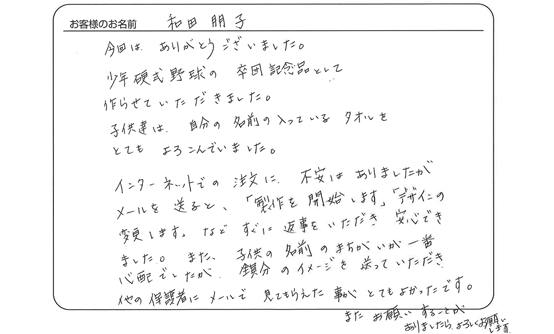 お客様のお名前 和田 朋子
今回は ありがとうございました。
少年硬式野球の 卒団記念品として
作らせていただきました。
子供達は、自分の 名前の入っている タオルを
とても よろこんでいました。
インターネットでの 注文に、不安は ありましたが
メールを 送ると、「製作を 開始します」「デザインの
変更します。など すぐに 返事を いただき 安心でき
ました。また、子供の 名前の まちがいが 一番
心配でしたが、 分の イメージを 送っていただき
他の 保護者に メールで 見てもらえた 事が とてもよかったです。
また お願い することが
ありましたら、よろしくお願い
します